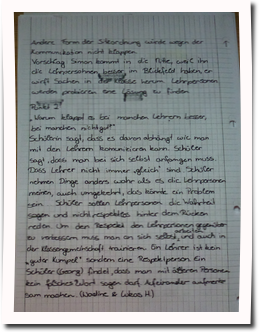 Andere Form der Sitzordnung würde wegen der
Kommunikation nicht klappen.
Vorschlag Simon kommt in die Mitte, weil ihn
die Lehrpersonen besser im Blickfeld haben, er
wirft Sachen in Klasse herum Lehrpersonen
werden probieren eine Lösung zu finden
Punkt 2
"Warum klappt es bei manchen Lehrern besser,
bei manchen nicht gut"
Schülerin sagt, dass es davon abhängt wie man
mit den Lehrern kommuniziert kann. Schüler
sagt, dass man bei sich selbst anfangen muss.
Dass Lehrer nicht immer "gleich" sind Schüler
nehmen Dinge anders wahr als es die Lehrpersonen
meinen, auch umgekehrt, das könnte ein Problem
sein. Schüler sollen Lehrpersonen die Wahrheit
sagen und nicht respektlos hinter dem Rücken
reden. Um den Respekt den Lehrpersonen gegenüber
zu verbessern muss man an sich selbst arbeiten, und auch in
der Klassengemeinschaft trainieren. Ein Lehrer ist kein
"guter Kumpel" sondern eine Respektperson ein
Schüler (Georg) findet, dass man mit älteren Personen
kein falsches Wort sagen darf. Aufeinander aufmerk
sam machen. (Nadine & Lukas H.)